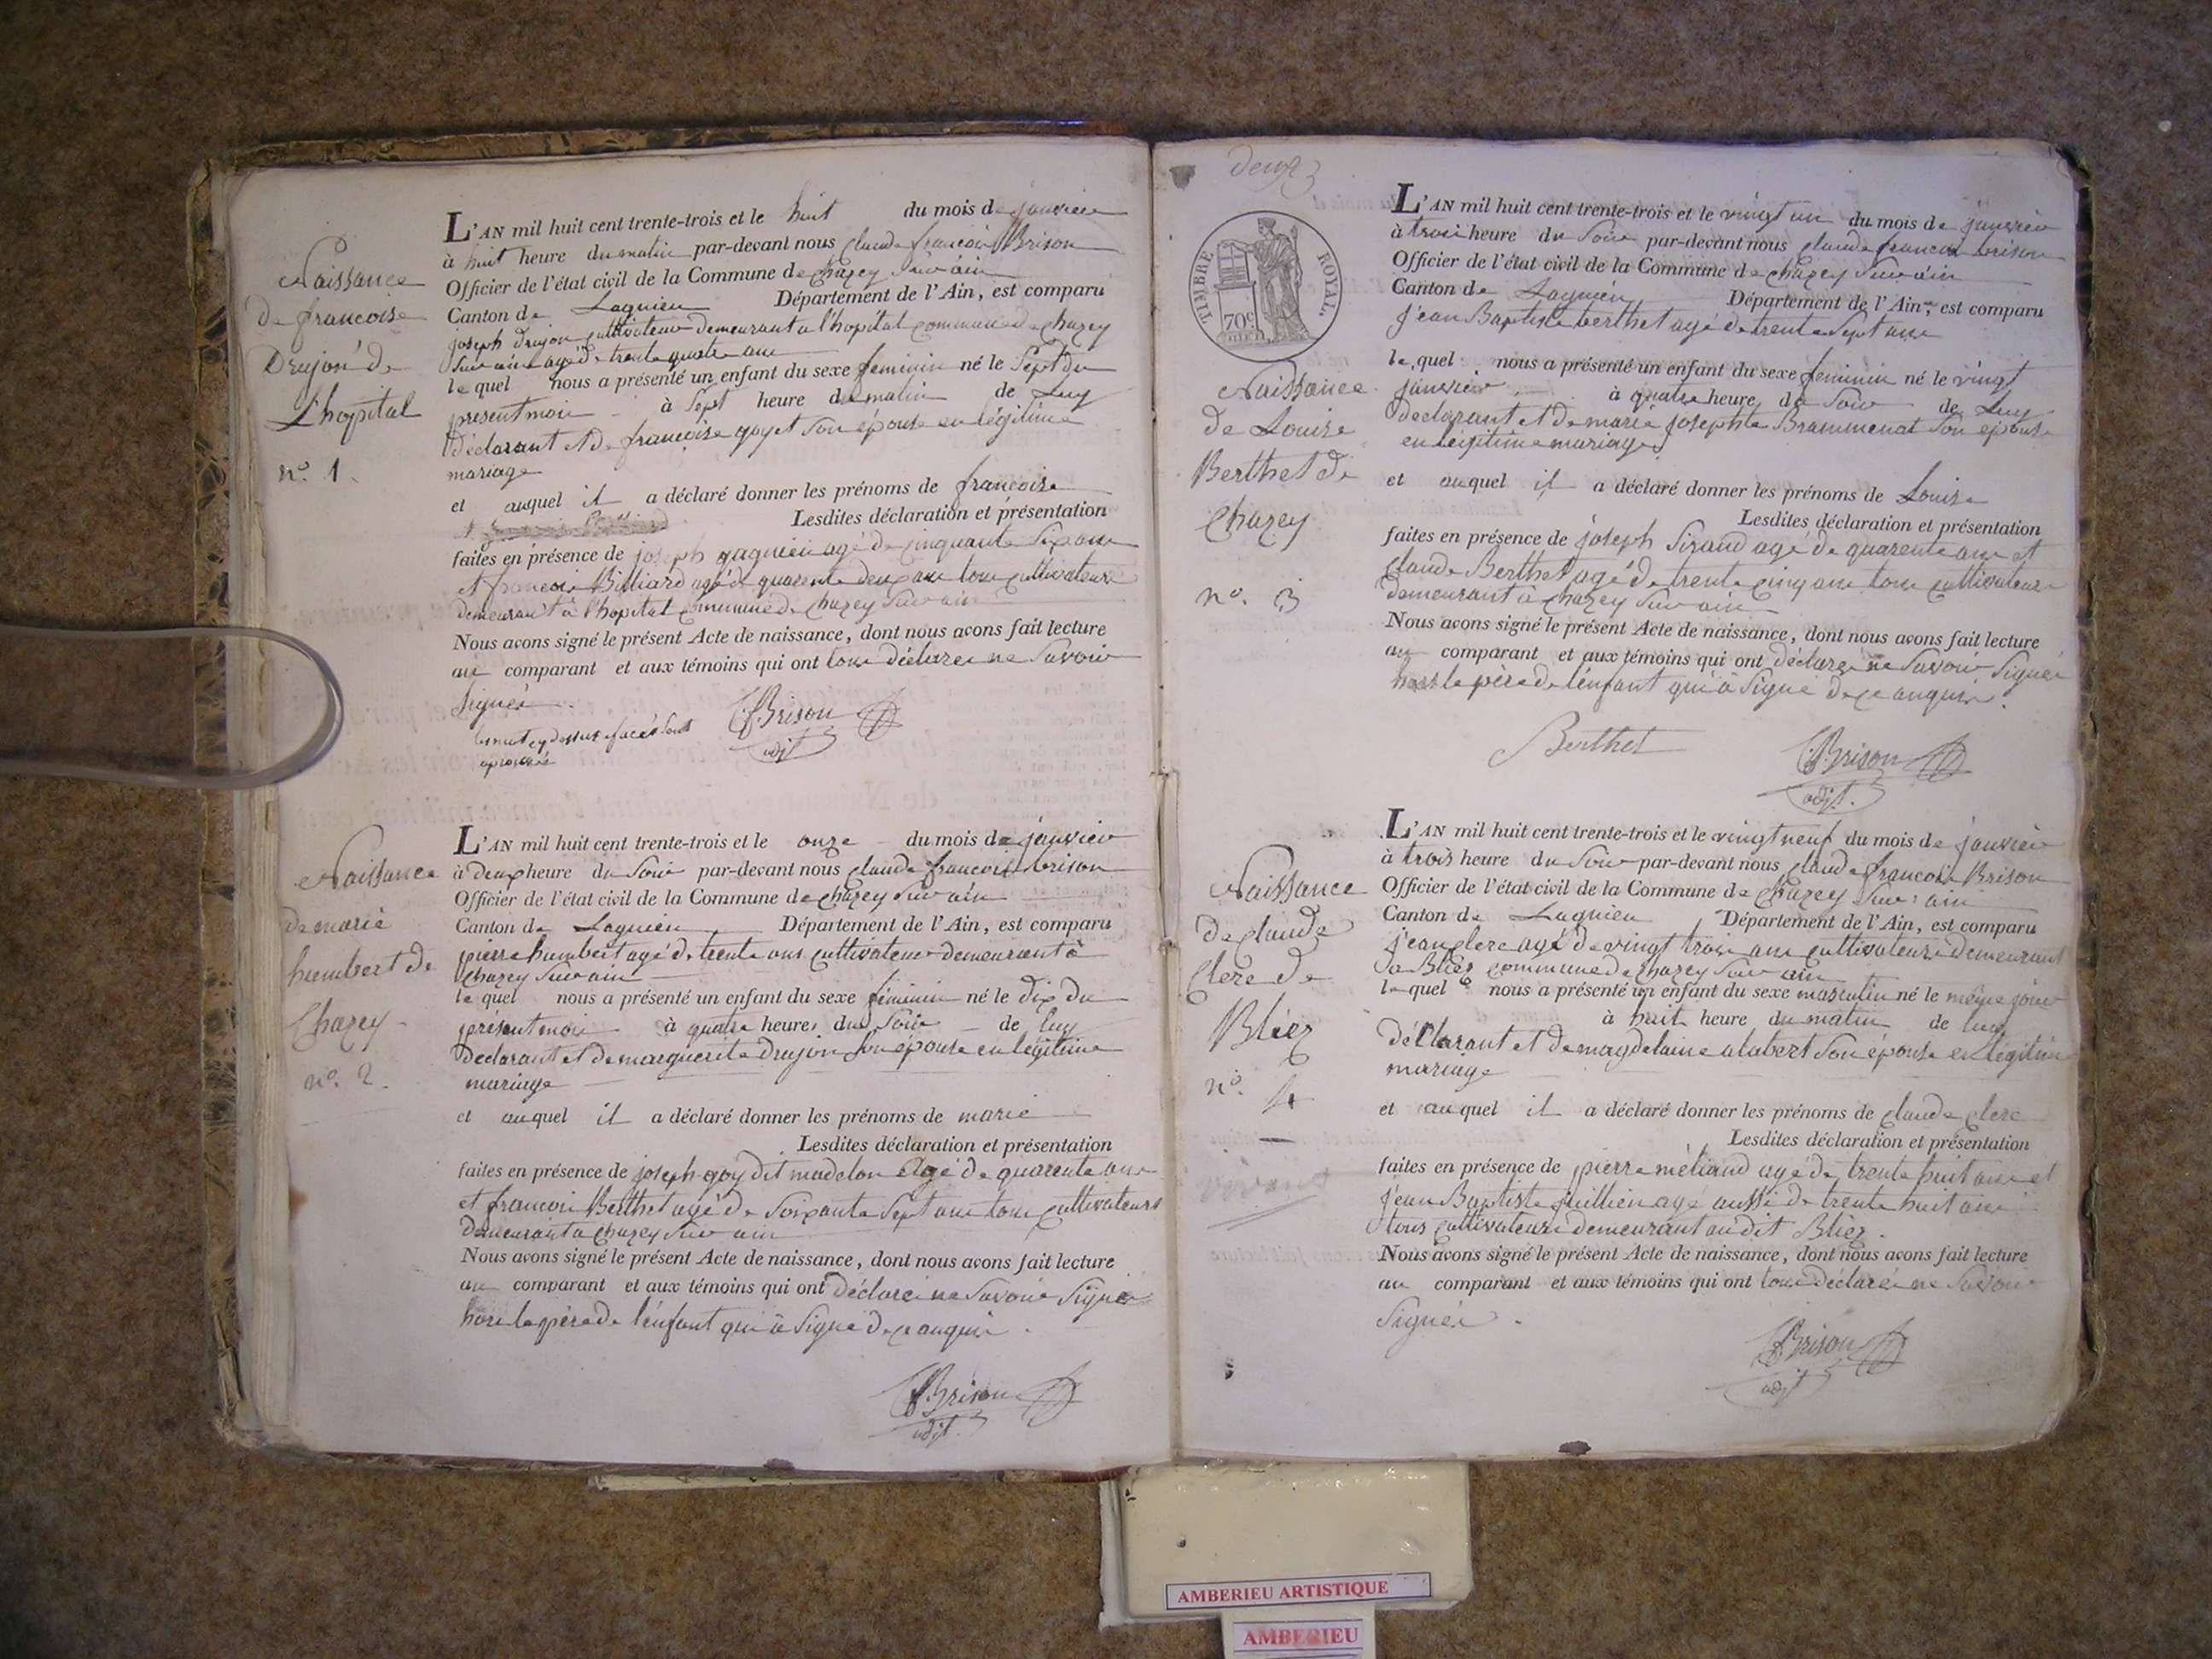 Naissance
de francoise
Drujon de
L'hopital
n.o 1.
L'AN mil huit cent trente-trois et le huit du mois de janvier
à huit heure du matin par-devant nous claude francois Brison
Officier de l'état civil de la Commune de chazey Sur ain
Canton de Lagnieu Département de l'Ain, est comparu
joseph drujon cultivateur demeurant a l'hopital commune de chazey
Sur ain agé de trente quatre ans
lequel nous a présenté un enfant du sexe feminin né le Sept du
present mois à Sept heure du matin de Luy
déclarant et de françoise goyet Son épouse en légitime
mariage
et auquel il a déclaré donner les prénoms de francoise
Lesdites déclaration et présentation
faites en présence de joseph gagnieu agé de cinquante Six ans
et francois Billiard agé de quarente deux ans tous cultivateurs
demeurant à l'hopital commune de chazey Sur ain
Nous avons signé le présent Acte de naissance, dont nous avons fait lecture
au comparant et aux témoins qui ont tous déclarés ne Savoir
Signér
les mots cy dessus efacés Sont
aprouvés
CfBrison
adjt
Naissance
de marie
humbert de
Chazey
n.o 2.
L'AN mil huit cent trente-trois et le onze du mois de janvier
à deux heure du Soir par-devant nous claude francois brison
Officier de l'état civil de la Commune de chazey Sur ain
Canton de Lagnieu Département de l'Ain, est comparu
pierre humbert agé de trente ans cultivateur demeurant à
Chazey Sur ain
lequel nous a présenté un enfant du sexe féminin né le dix du
présent mois à quatre heures du Soir de luy
déclarant et de marguerite drujon Son épouse en légitime
mariage
et auquel il a déclaré donner les prénoms de marie
Lesdites déclaration et présentation
faites en présence de joseph goy dit madelon agé de quarente ans
et francois Berthet agé de Soixante Sept ans tous cultivateurs
demeurant a chazey Sur ain
Nous avons signé le présent Acte de naissance, dont nous avons fait lecture
au comparant et aux témoins qui ont déclaré ne Savoir Signer
hors le père de l'énfant qui à Signé de ce anquis
CfBrison
adjt.
deux
TIMBRE ROYAL
70c
Naissance
de Louise
Berthet de
Chazey
n.o 3
L'AN mil huit cent trente-trois et le vingt un du mois de janvier
à trois heure du Soir par-devant nous claude francois brison
Officier de l'état civil de la Commune de chazey Sur ain
Canton de Lagnieu Département de l'Ain, est comparu
jean Baptiste berthet agé de trente Sept ans
lequel nous a présenté un enfant du sexe feminin né le vingt
janvier à quatre heure du Soir de Luy
declarant et de marie josephte Brammerat Son épouse
en légitime mariage
et auquel il a déclaré donner les prénoms de Louise
Lesdites déclaration et présentation
faites en présence de joseph Siraud agé de quarente ans et
claude Berthet agé de trente cinq ans tous cultivateurs
demeurant à chazey Sur ain
Nous avons signé le présent Acte de naissance, dont nous avons fait lecture
au comparant et aux témoins qui ont déclaré ne Savoir Signér
hors le père de l'énfant qui à Signé de ce anquis.
Berthet
CfBrison
adjt.
Naissance
de claude
Clerc de
Bliez
n.o 4
vivant
L'AN mil huit cent trente-trois et le vingt neuf du mois de janvier
à trois heure du Soir par-devant nous claude francois Brison
Officier de l'état civil de la Commune de Chazey Sur ain
Canton de Lagnieu Département de l'Ain, est comparu
jean clerc agé de vingt trois ans cultivateur demeurant
a Bliez commune de chazey Sur ain
lequel nous a présenté un enfant du sexe masculin né le même jour
à huit heure du matin de luy
déclarant et de magdelaine alabert Son épouse en légitime
mariage
et auquel il a déclaré donner les prénoms de claude clerc
Lesdites déclaration et présentation
faites en présence de pierre méliand agé de trente huit ans et
jean Baptiste juillien agé aussi de trente huit ans
tous cultivateurs demeurant audit Bliez.
Nous avons signé le présent Acte de naissance, dont nous avons fait lecture
au comparant et aux témoins qui ont tous déclarés ne Savoir
Signér.
CfBrison
adjt
AMBERIEU ARTISTIQUE
AMBERIEU